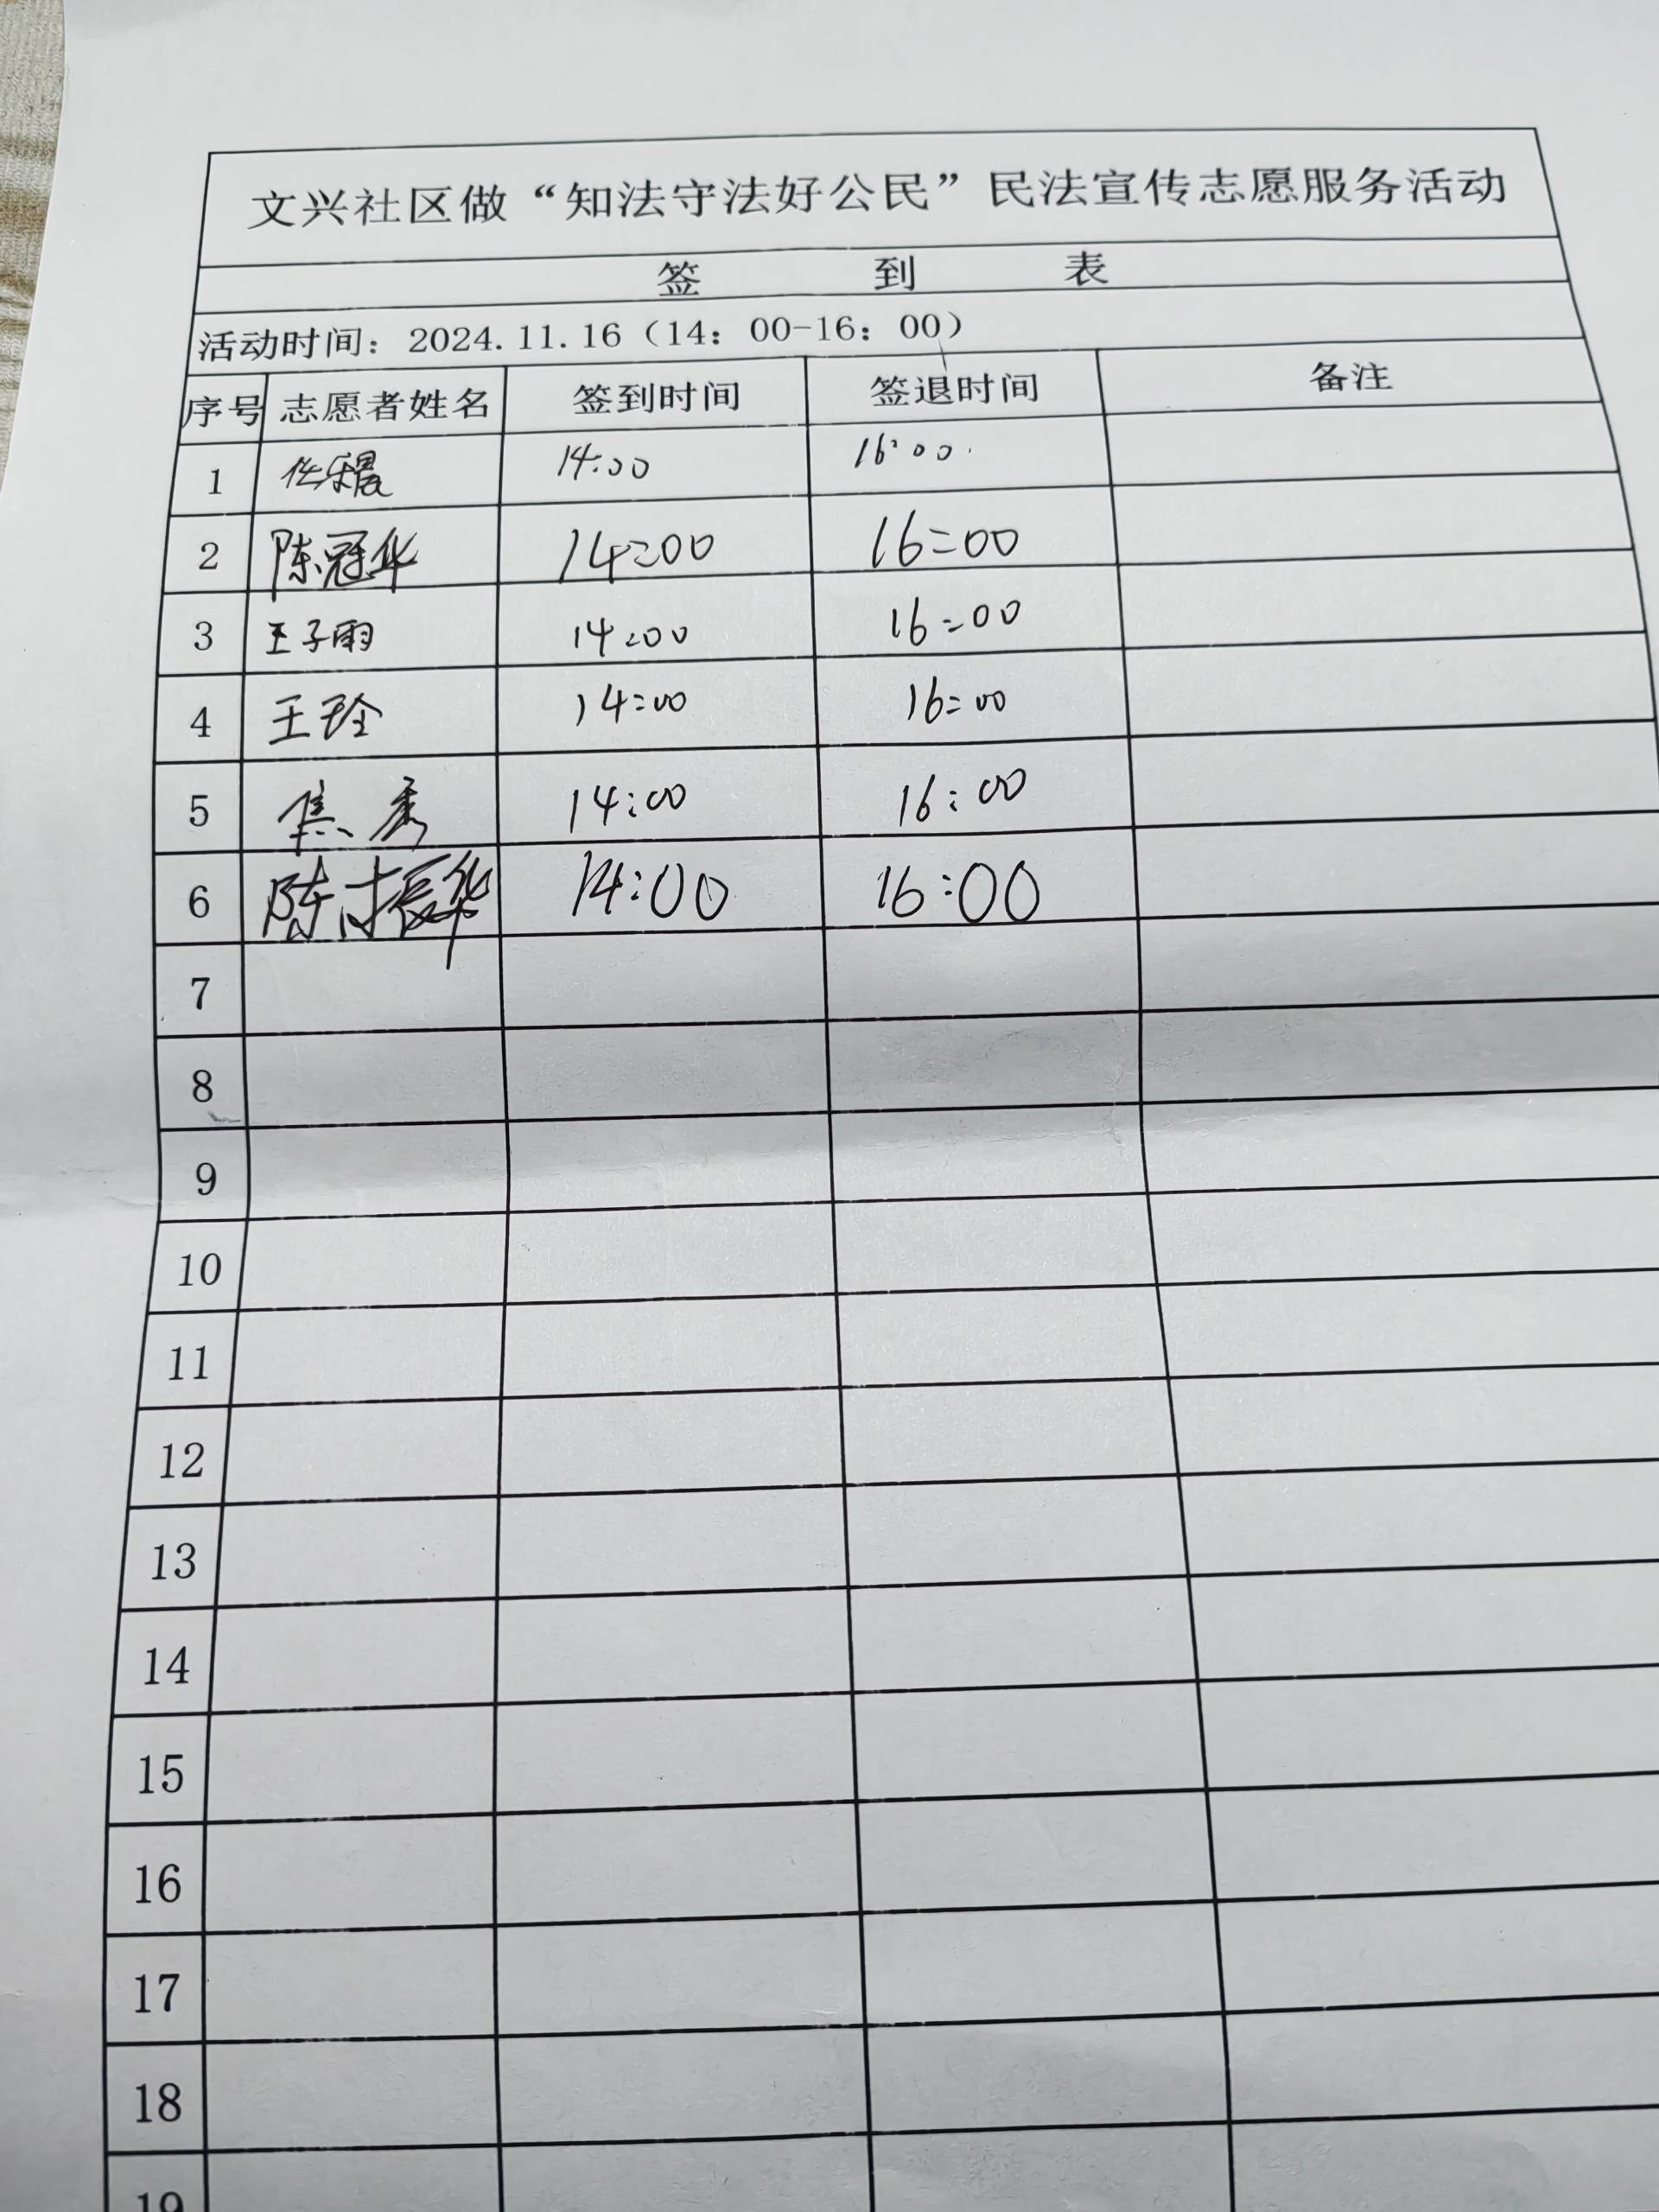 文兴社区做“知法守法好公民”民法宣传志愿服务活动
签 到 表
活动时间：2024.11.16（14：00-16：00）
序号 志愿者姓名 签到时间 签退时间 备注
1 任乐晨 14:00 16:00
2 陈冠华 14:00 16:00
3 王子雨 14:00 16:00
4 王玲 14:00 16:00
5 焦秀 14:00 16:00
6 陈振华 14:00 16:00
7
8
9
10
11
12
13
14
15
16
17
18
19